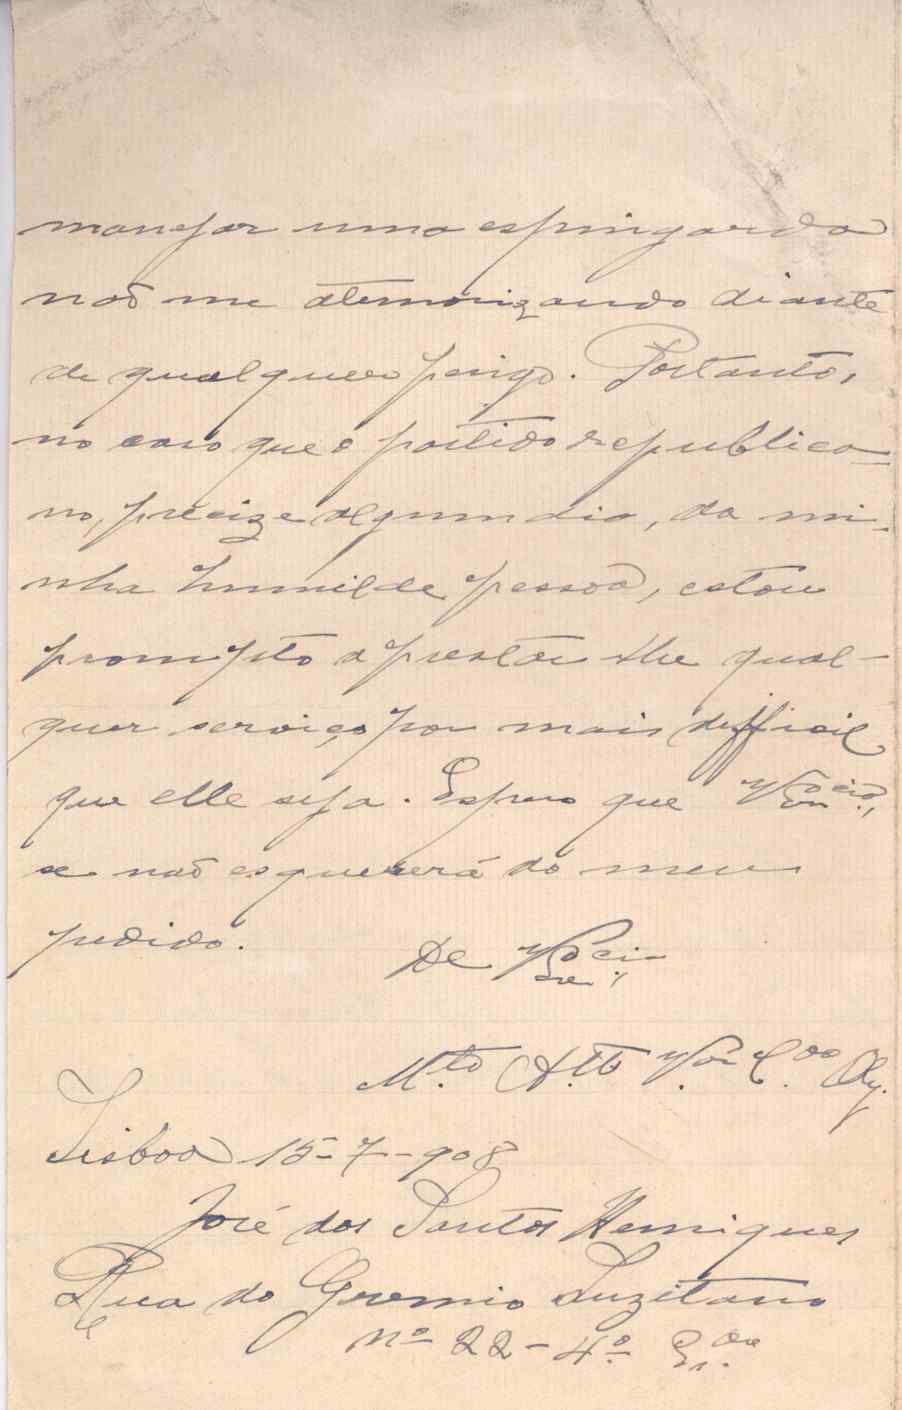 manejar uma espingarda
não me atemorizando diante
de qualquer perigo. Portanto,
no caso que o partido republica-
no, precize algum dia, da mi-
nha humilde pessoa, estou
prompto a prestar lhe qual-
quer serviço por mais difficil
que elle seja. Espero que V. Ex.cia,
se não esquecerá do meu
pedido.
De V. Ex.cia
M.to At.to V.or C.do Obg.
Lisboa 15-7-908
José dos Santos Henriques
Rua do Gremio Luzitano
nº 22-4º